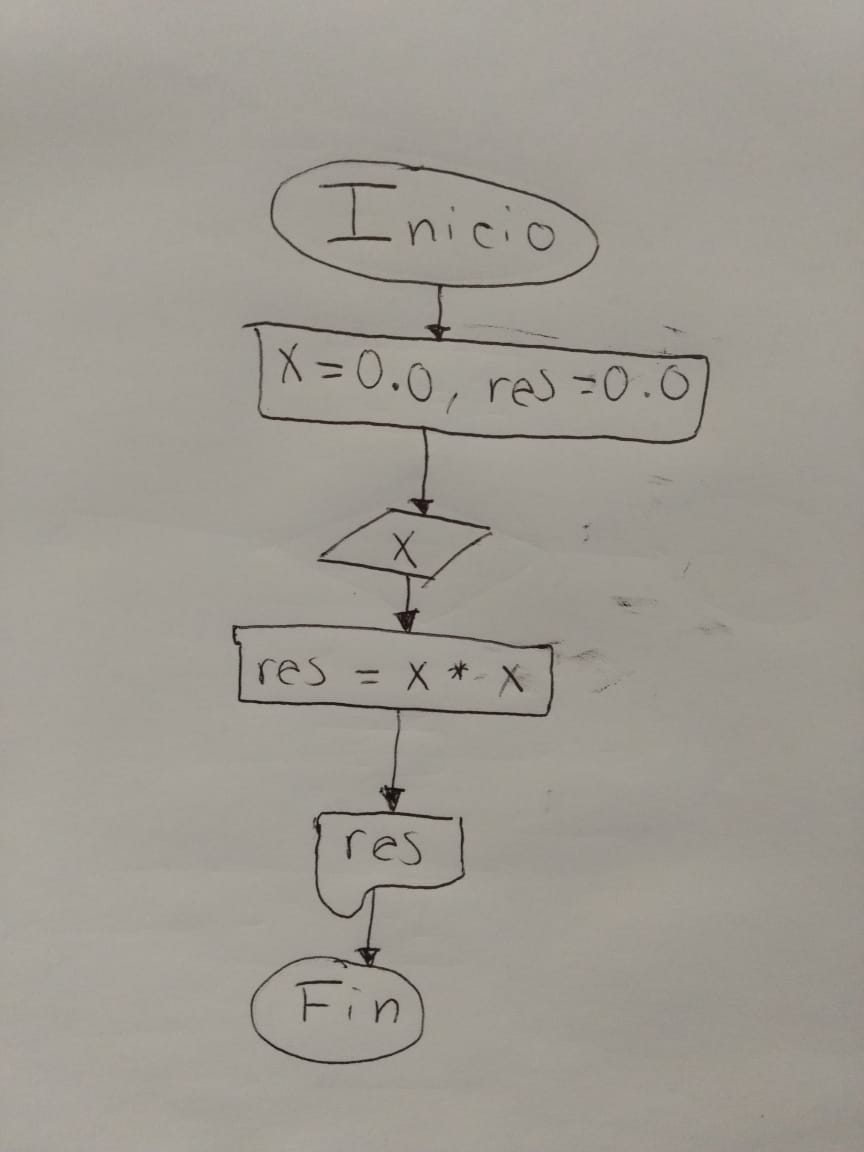 Inicio
X=0.0, res=0.0
X
res = X * X
res
Fin